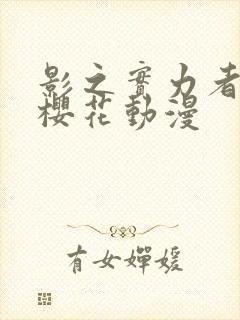 影之實力者
櫻花動漫
有女嬋媛